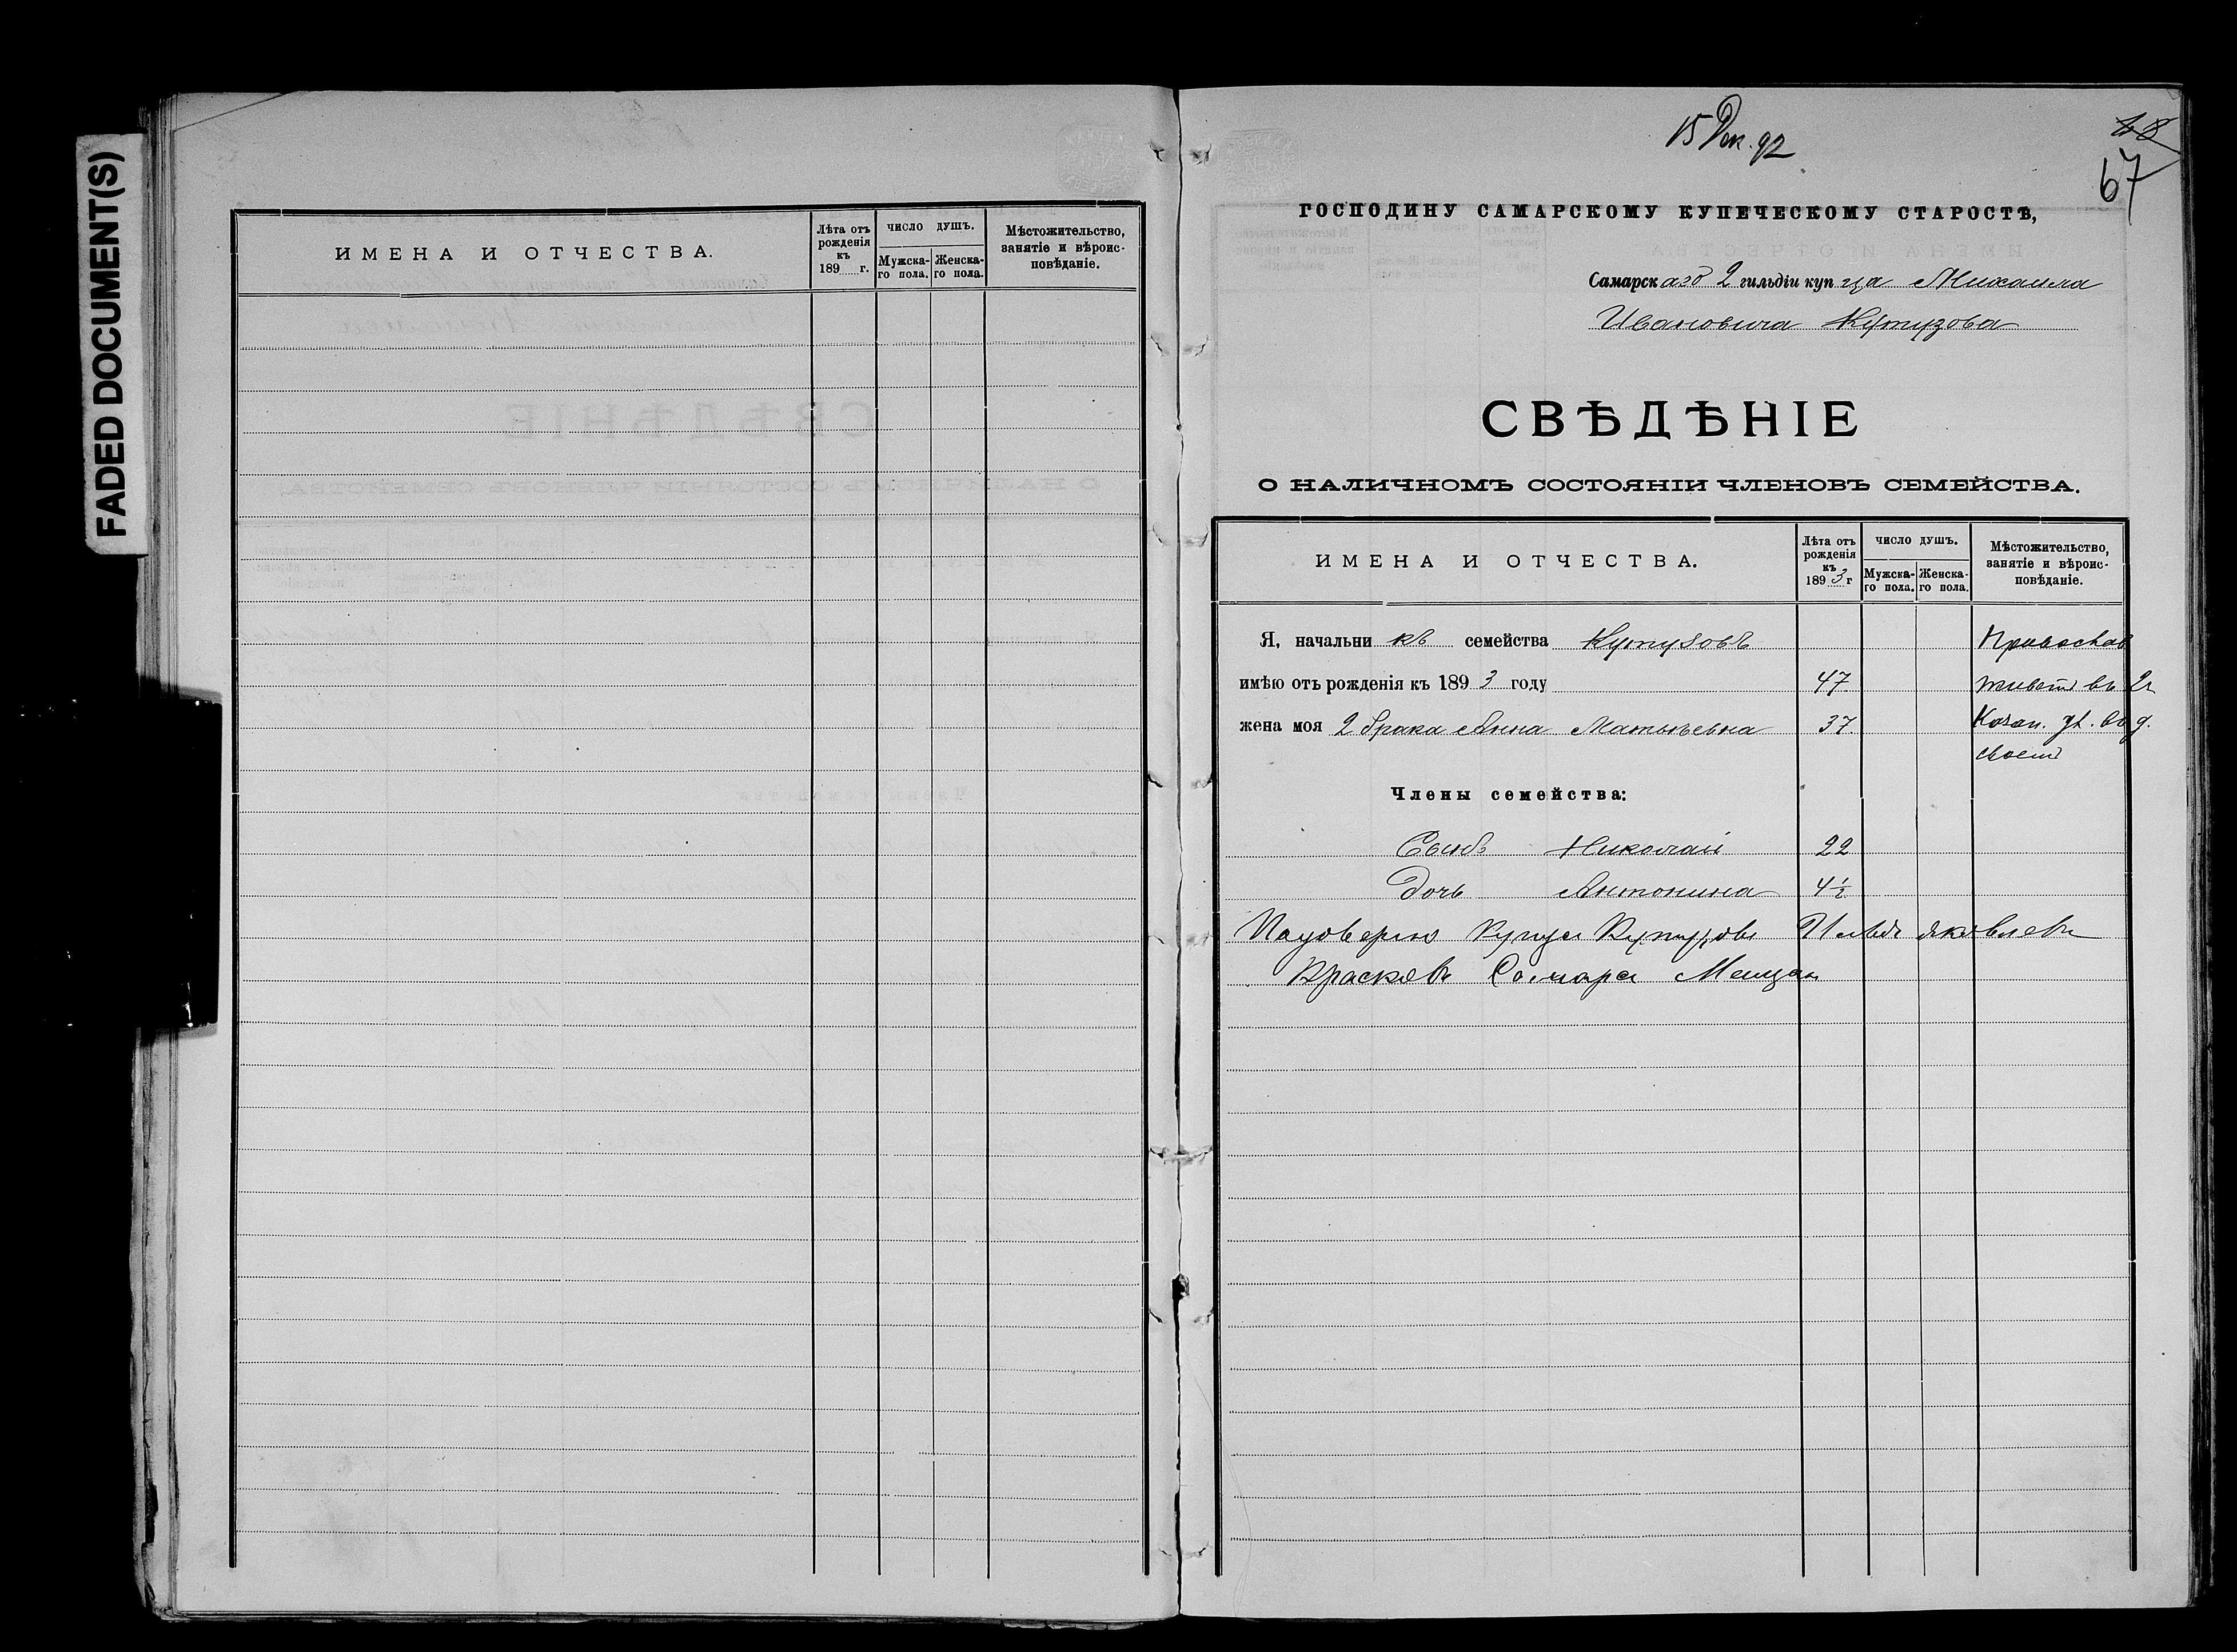 FADED DOCUMENT(S)
ИМЕНА И ОТЧЕСТВА.
Лѣта отъ рожденія къ 189 г.
ЧИСЛО ДУШЪ.
Мужска-го пола.
Женска-го пола.
Мѣстожительство, занятіе и вѣроис-повѣданіе.
15 Дек. 92
48
67
ГОСПОДИНУ САМАРСКОМУ КУПЕЧЕСКОМУ СТАРОСТѢ,
Самарскаго 2 гильдіи купца Михаила
Ивановича Кутузова
СВѢДѢНІЕ
О НАЛИЧНОМЪ СОСТОЯНІИ ЧЛЕНОВЪ СЕМЕЙСТВА.
ИМЕНА И ОТЧЕСТВА.
Лѣта отъ рожденія къ 1893 г
ЧИСЛО ДУШЪ.
Мужска-го пола.
Женска-го пола.
Мѣстожительство, занятіе и вѣроис-повѣданіе.
Я, начальникъ семейства Кутузовъ Православ
имѣю отъ рожденія къ 1893 году 47 живетъ въ 2ч
жена моя 2 брака Анна Матвѣевна 37 Казан. ул. въ д.
своемъ
Члены семейства:
Сынъ Николай 22
Дочь Антонина 4½
Подоверію Купца Кутузова Илья Яковлевъ
Красковъ Самара Мещан